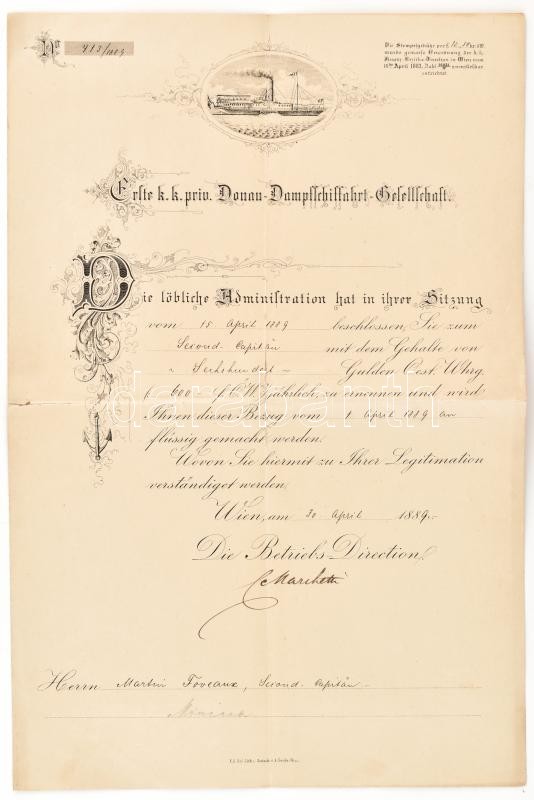 No 913/1889
Die Stempelgebühr per f.
wurde gemäss Verordnung der k. k.
Finanz-Bezirks-Direction in Wien vom
16ten April 1883, Zahl unmittelbar
entrichtet.
Erste k. k. priv. Donau-Dampfschiffahrt-Gesellschaft.
Die löbliche Administration hat in ihrer Sitzung
vom 15 April 1889 beschlossen, Sie zum
Second-Capitän mit dem Gehalte von
Sechshundert Gulden Oest. Whrg.
f 600 f. Ö.W. jährlich, zu ernennen und wird
Ihnen dieser Bezug vom 1 April 1889 an
flüssig gemacht werden.
Wovon Sie hiermit zu Ihrer Legitimation
verständiget werden.
Wien, am 30 April 1889.
Die Betriebs-Direction.
Marchetti
Herrn Martin Foveaux, Second-Capitän
darabanth